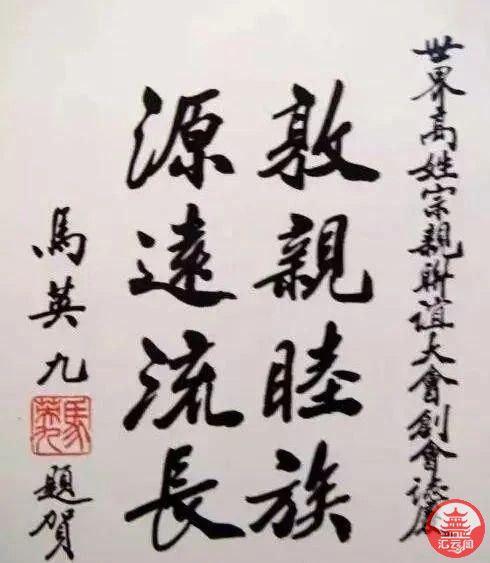 世界高姓宗親聯誼大會創會誌慶
敦親睦族
源遠流長
馬英九
題賀
馬英九
汇云阁